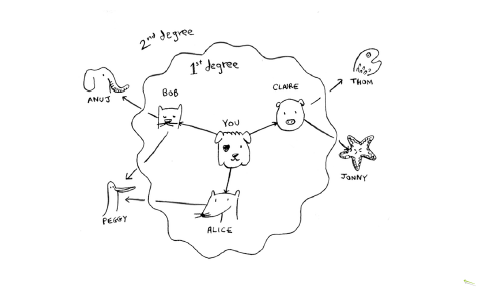 2nd degree
1st degree
BOB
CLAIRE
THOM
ANUJ
YOU
JONNY
PEGGY
ALICE